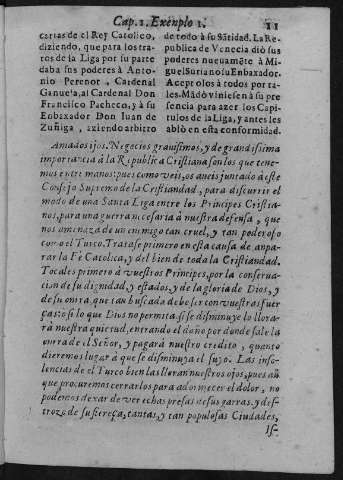 Cap. 1. Exẽnplo 1. 11
cartas de el Rey Catolico,
diziendo, que para los tra-
tos de la Liga por su parte
daba sus poderes à Anto-
nio Perenot, Cardenal
Ganuela, al Cardenal Don
Francisco Pacheco, y à su
Enbaxador Don Iuan de
Zuñiga, aziendo arbitro
de todo à su Sãtidad. La Re-
publica de Venecia diò sus
poderes nueuamẽte à Mi-
guel Suriano su Enbaxador.
Aceptolos à todos por ta-
les. Mãdò viniesen à su pre-
sencia para azer los Capi-
tulos de la Liga, y antes les
ablò en esta conformidad.
Amados ijos. Negocios grauisimos, y de grandisima
importancia à la Republica Cristiana son los que tene-
mos entre manos: pues como veis, os aueis juntado à este
Consejo Supremo de la Cristiandad, para discurrir el
modo de una Santa Liga entre los Principes Cristia-
nos, para una guerra necesaria à nuestra defensa, que
nos amenaza de un enemigo tan cruel, y tan poderoso
como el Turco. Tratase primero en esta causa de anpa-
rar la Fè Catolica, y del bien de toda la Cristiandad.
Tocales primero à vuestros Principes, por la conserua-
cion de su dignidad, y estados, y de la gloria de Dios, y
de su onra, que tan buscada debe ser con vuestras fuer
ças: to si lo que Dios no permita, si se disminuye lo llora-
rà nuestra quietud, entrando el daño por donde sale la
onra de el Señor, y pagarà nuestro credito, quanto
dieremos lugar à que se disminuya el suyo. Las inso-
lencias de el Turco bien las lloran nuestros ojos, pues aũ
que procuremos cerrarlos para adormecer el dolor, no
podemos dexar de ver echas presas de sus garras, y des-
trozo de su fiereça, tantas, y tan populosas Ciudades,
Is-